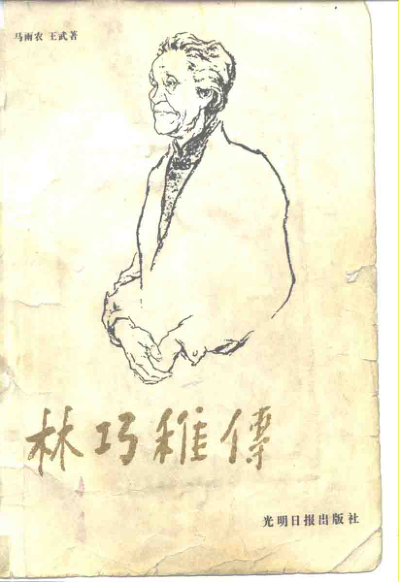 马雨农 王武著
林巧稚傳
光明日报出版社